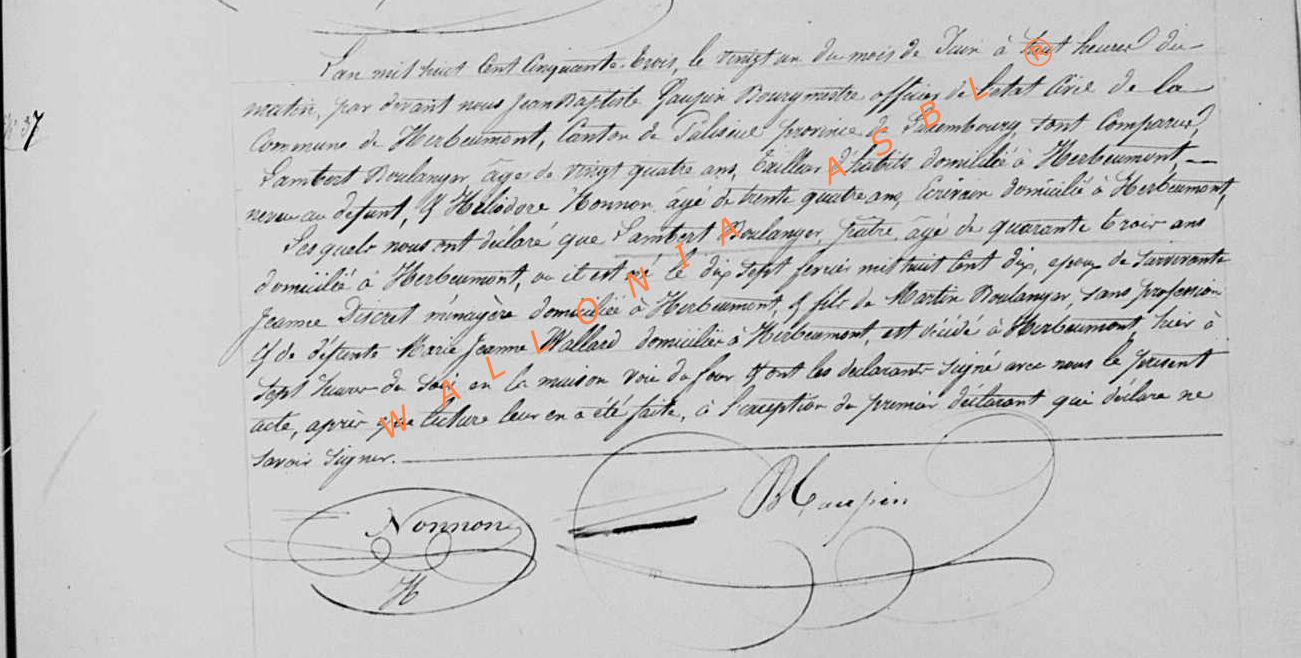 L'an mil huit Cent Cinquante-trois, le vingt un du mois de Juin à huit heures du
matin, par devant nous Jean Baptiste Maupin Bourgmestre officier de l'état Civil de la
Commune de Herbeumont, Canton de Paliseul province de Luxembourg, sont Comparus,
N° 37
Lambert Boulanger âgé de vingt quatre ans, tailleur d'habits domicilié à Herbeumont, —
neveu au défunt, & Héliodore Nonnon âgé de trente quatre ans, Ecrivain domicilié à Herbeumont,
Lesquels nous ont déclaré que Lambert Boulanger, pâtre âgé de quarante trois ans
domicilié à Herbeumont, ou il est né le dix sept fevrier mil huit Cent dix, epoux de survivante
Jeanne Discret ménagère domiciliée à Herbeumont, & fils de Martin Boulanger, sans profession
& de défunte Marie Jeanne Wallard domiciliée à Herbeumont, est décédé à Herbeumont, hier à
sept heures du soir en la maison voie du four & ont les déclarants signé avec nous le présent
acte, après que lecture leur en a été faite, à l'exception du premier déclarant qui déclare ne
savoir signer. —
Nonnon
H
Maupin
WALLONIA ASBL ®